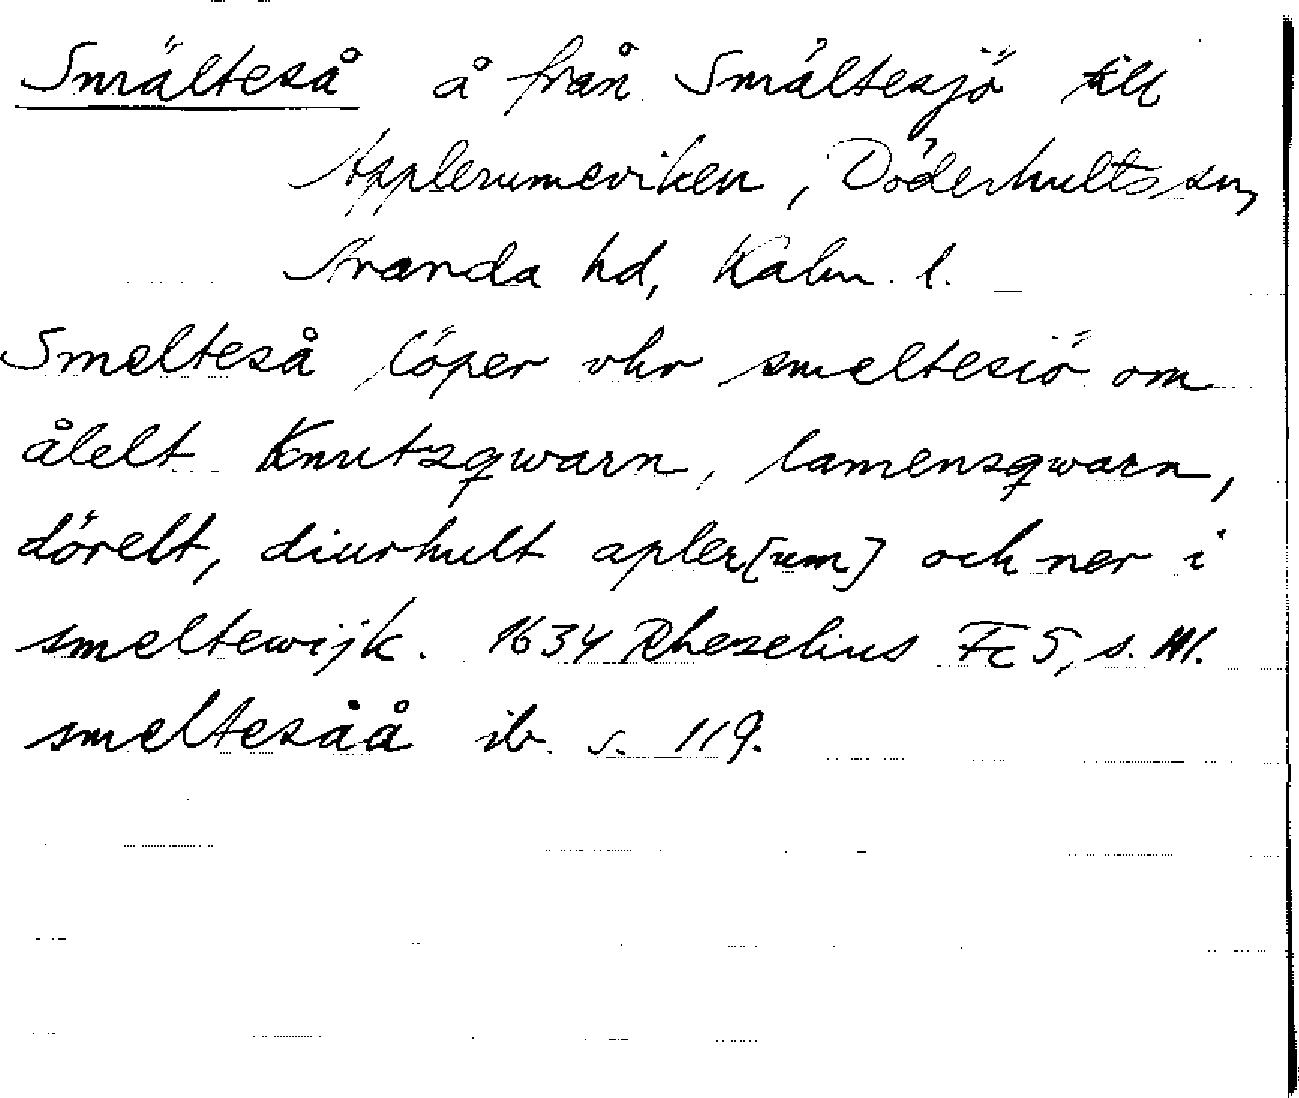 Smälteså å från Smältesjö till
Applerumeviken, Döderhults sn,
Aranda hd, Kalm. l.
Smelteså löper vhr smeltesiö om
ålelt Knutzqwarn, lamensqwarn,
dörelt, diurhult apler[um] och ner i
smeltewijk. 1634 Rhezelius Fc 5, s. 111.
smeltesåå ib. s. 119.